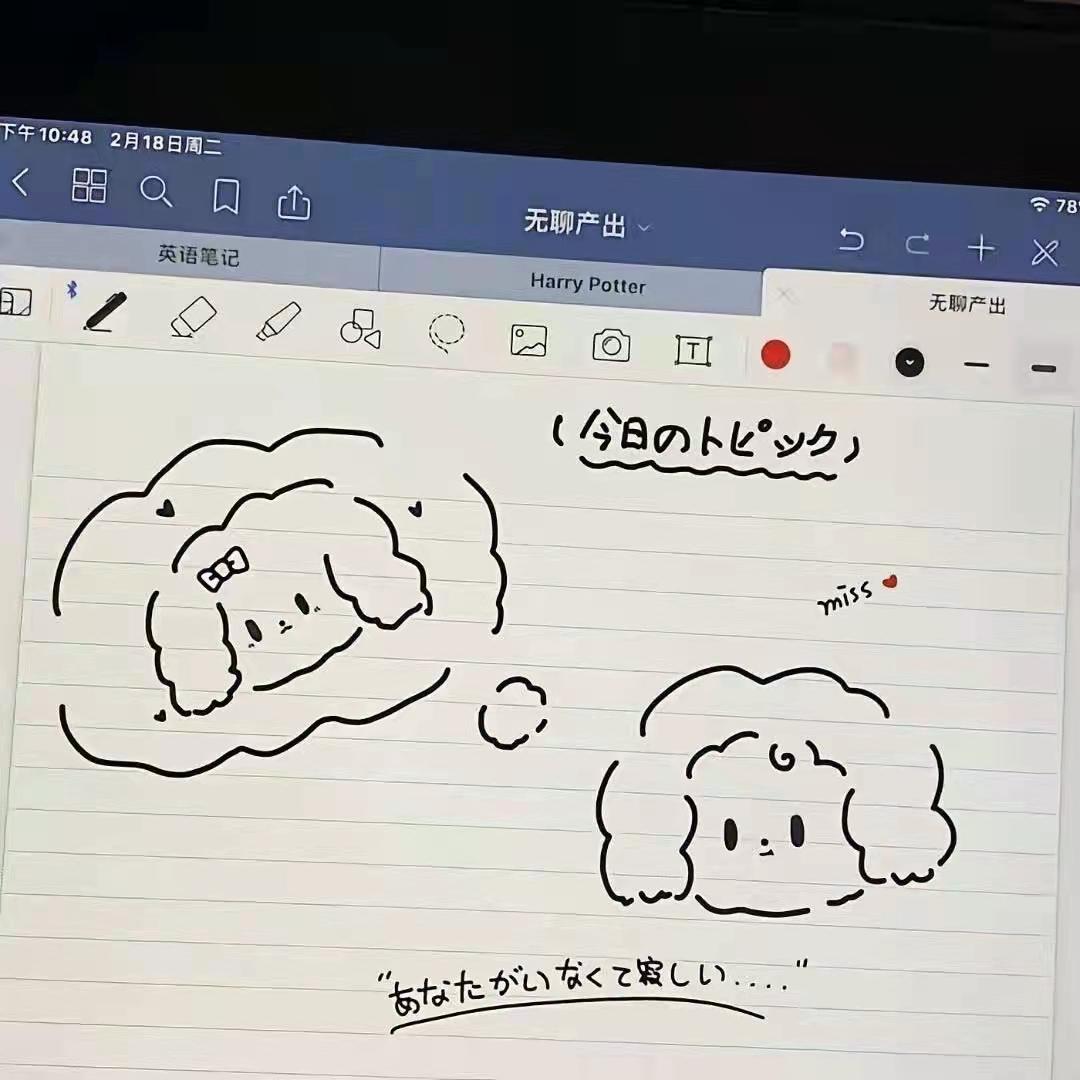 下午10:48 2月18日周二
78%
无聊产出
英语笔记
Harry Potter
无聊产出
T
(今日のトピック)
miss
"あなたがいなくて寂しい....."